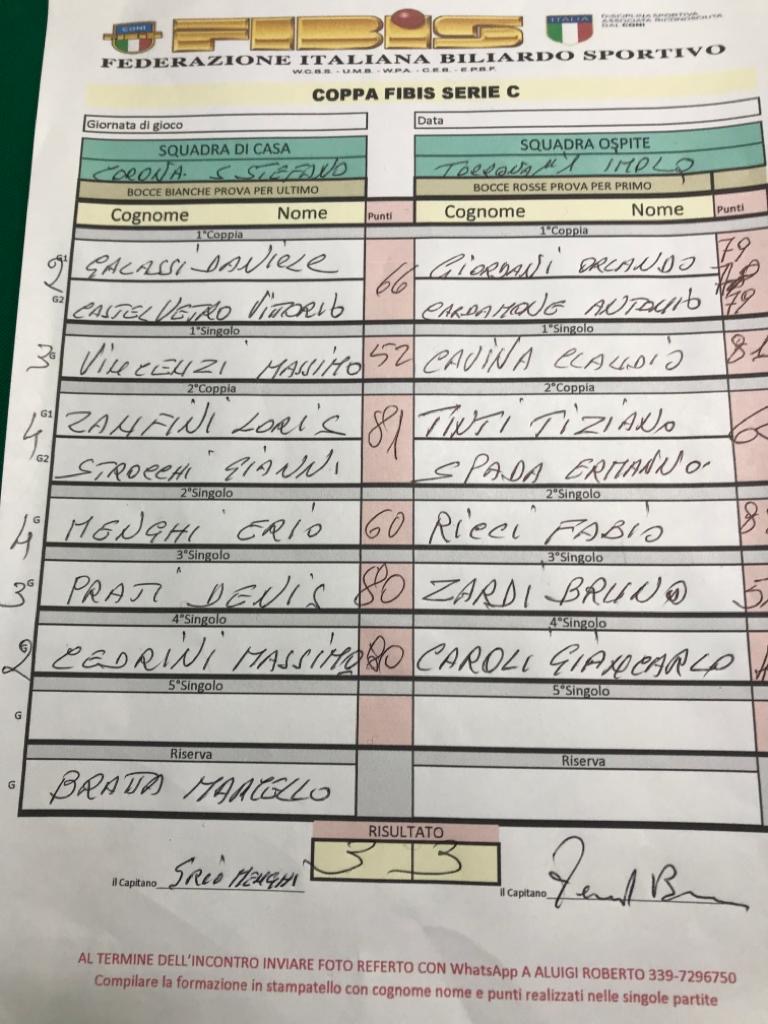 CONI
FIBIS
ITALIA
DISCIPLINA SPORTIVA
ASSOCIATA RICONOSCIUTA
DAL CONI
FEDERAZIONE ITALIANA BILIARDO SPORTIVO
W.C.B.S. - U.M.B. - W.P.A. - C.E.B. - E.P.B.F.
COPPA FIBIS SERIE C
Giornata di gioco Data
SQUADRA DI CASA SQUADRA OSPITE
CORONA S. STEFANO IMOLA
BOCCE BIANCHE PROVA PER ULTIMO BOCCE ROSSE PROVA PER PRIMO
Cognome Nome Punti Cognome Nome Punti
1°Coppia 1°Coppia
2 G1 GALASSI DANIELE 66 GIORDANI ORLANDO 79
G2 CASTELVETRO VITTORIO CARDAMONE ANTONIO 79
1°Singolo 1°Singolo
3 G VINCENZI MASSIMO 52 CAVINA CLAUDIO 81
2°Coppia 2°Coppia
4 G1 ZANFINI LORIS 81 TINTI TIZIANO
G2 STROCCHI GIANNI SPADA ERMANNO
2°Singolo 2°Singolo
4 G MENGHI ERIO 60 RICCI FABIO
3°Singolo 3°Singolo
3 G PRATI DENIS 80 ZARDI BRUNO
4°Singolo 4°Singolo
2 G CEDRINI MASSIMO 80 CAROLI GIANCARLO
5°Singolo 5°Singolo
G
Riserva Riserva
G BRATA MARCELLO
RISULTATO
3 3
il Capitano ERIO MENGHI il Capitano
AL TERMINE DELL'INCONTRO INVIARE FOTO REFERTO CON WhatsApp A ALUIGI ROBERTO 339-7296750
Compilare la formazione in stampatello con cognome nome e punti realizzati nelle singole partite